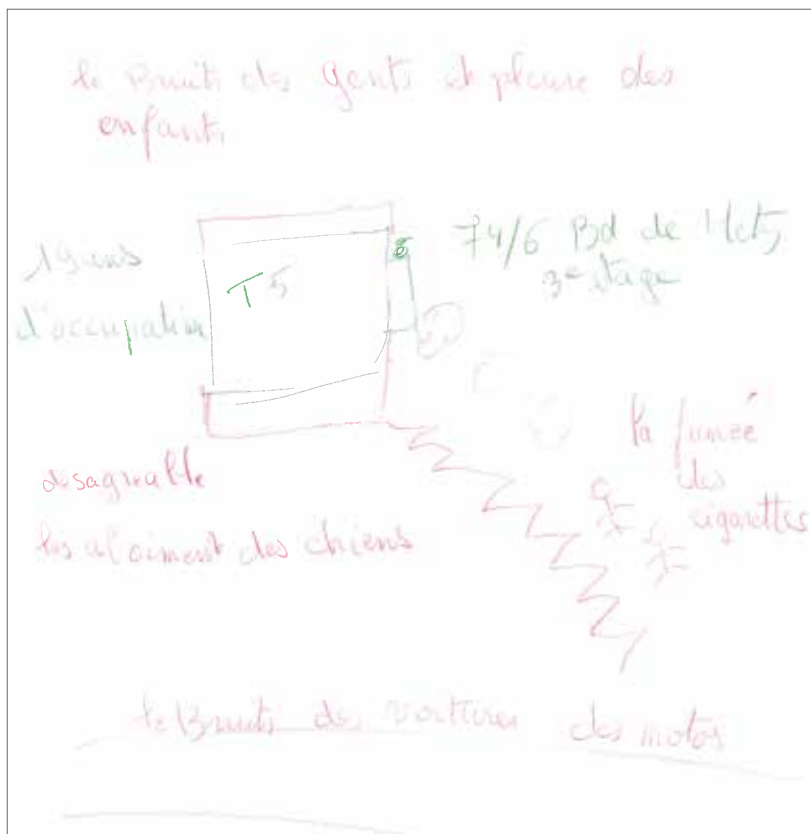 le Bruits des gents et pleure des
enfants
19 ans
d'occupation
T5
74/6 Bd de Metz
3e étage
la fumée
des
cigarettes
desagreable
les aboiment des chiens
le Bruits des voitures des motos